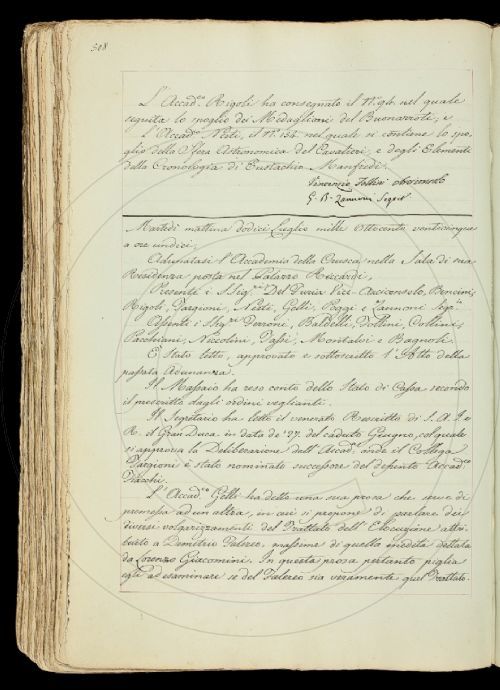 308
L'Accad.co Rigoli ha consegnato il N.o 96. nel quale
seguita lo spoglio dei Medaglioni del Buonarroti; e
l'Accad.co Nesti, il N.o 134. nel quale si contiene lo spo=
glio della Sfera Astronomica del Cavalieri, e degli Elementi
della Cronologia di Eustachio Manfredi.
Vincenzio Follini Arciconsolo
G. B. Zannoni Segret.
Martedì mattina dodici Luglio mille Ottocento venticinque
a ore undici.
Adunatasi l'Accademia della Crusca nella Sala di sua
Residenza posta nel Palazzo Riccardi,
Presente i SSig.ri Del Furia Vice-Arciconsolo, Bencini,
Rigoli, Targioni, Nesti, Gelli, Poggi e Zannoni Seg.o
Assenti i SSig.ri Perrone, Baldelli, Follini, Collini,
Pacchiani, Niccolini, Tassi, Montalvi e Bagnoli.
È stato letto, approvato e sottoscritto l'Atto della
passata Adunanza.
Il Massaio ha reso conto dello Stato di Cassa secondo
il prescritto dagli ordini veglianti.
Il Segretario ha letto il venerato Rescritto di S. A. I. e
R. il Gran Duca in data de' 27. del caduto Giugno, col quale
si approva la Deliberazione dell'Accad.a onde il Collega
Targioni è stato nominato successore del defunto Accad.co
Fiacchi.
L'Accad.co Gelli ha detto una sua prosa che serve di
premessa ad un'altra, in cui si propone di parlare dei
diversi volgarizzamenti del Trattato dell'Elocuzione attri=
buito a Demetrio Falereo, massime di quello inedito dettato
da Lorenzo Giacomini. In questa prosa pertanto piglia
egli ad esaminare se del Falereo sia veramente quel Trattato.